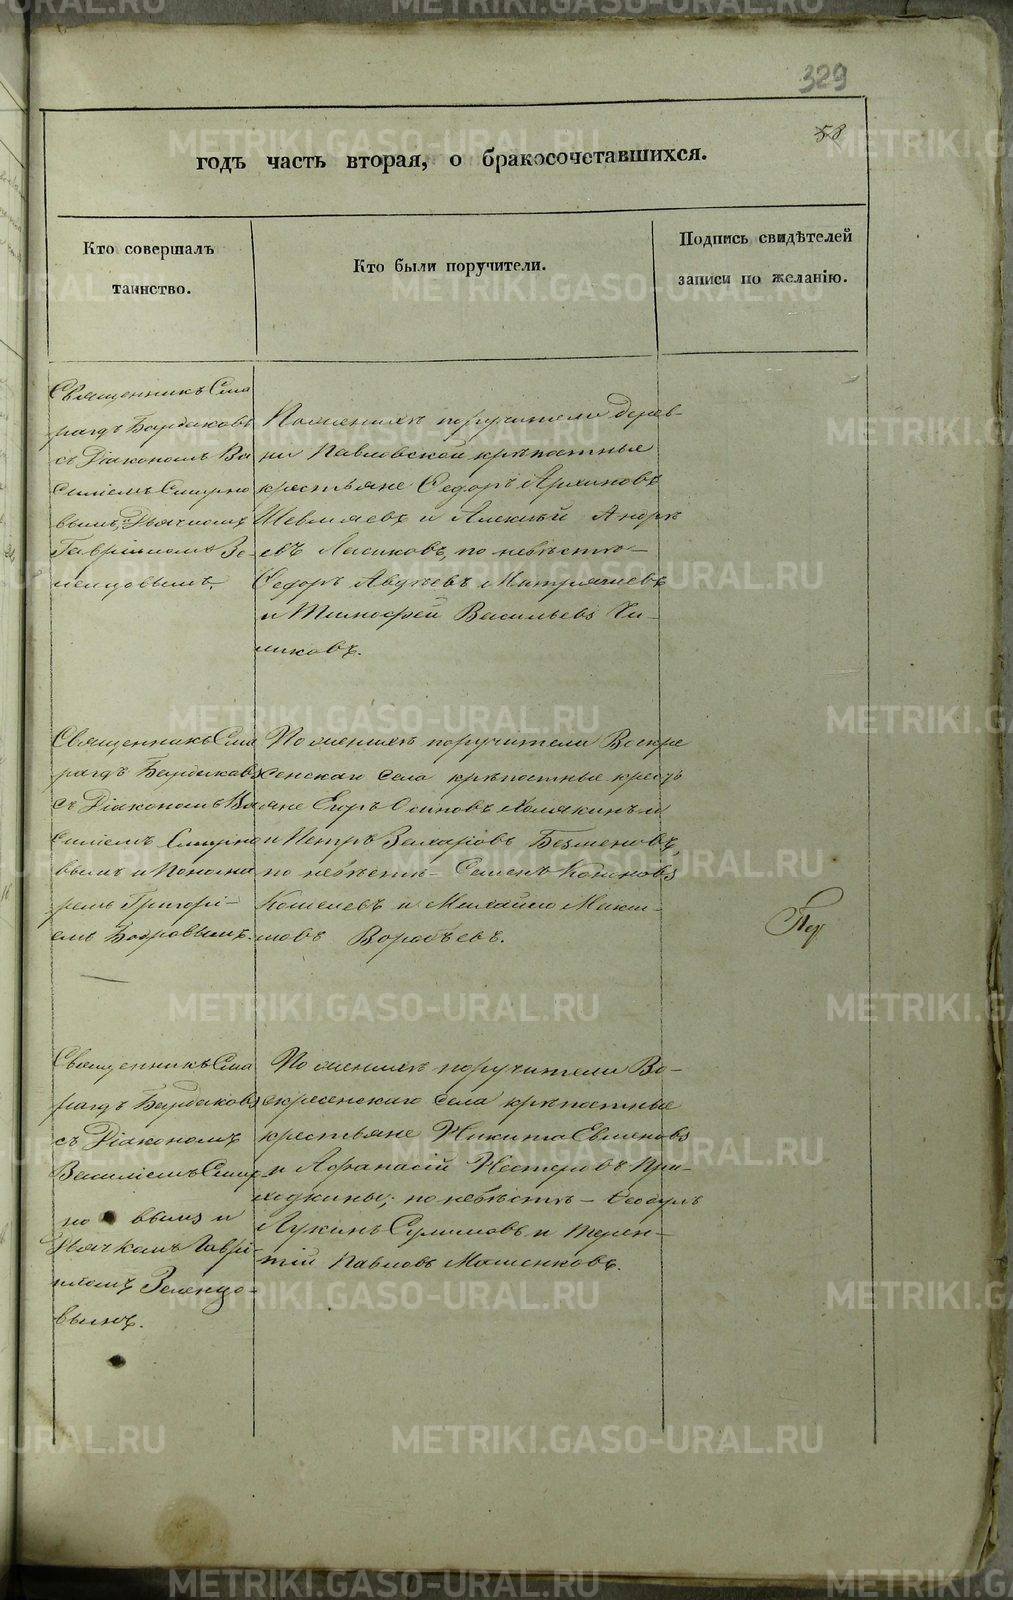 329
58
годъ часть вторая, о бракосочетавшихся.
Кто совершалъ
таинство.
Кто были поручители.
Подпись свидѣтелей
записи по желанію.
Священникъ Сма
рагдъ Бардаковъ
съ Діакономъ Ва
силіемъ Смирно
вымъ, Дьячкомъ
Гавріиломъ Зе
ленцовымъ
По женихѣ поручители дерев-
ни Павловской крѣпостные
крестьяне Ѳедоръ Архиповъ
и Алексѣй Андрѣ
евъ по невѣстѣ
Ѳедоръ Авдѣевъ
и Тимофей Васильевъ Чи-
жиковъ.
Священникъ Сма
рагдъ Бардаковъ
съ Діакономъ Ва
силіемъ Смирно
вымъ и Понома
ремъ Григорі-
емъ Бобровымъ.
По женихѣ поручители Воскре
сенскаго села крѣпостные кресть
яне Егоръ Осиповъ Холякинъ
и Петръ Захаровъ Безменовъ,
по невѣстѣ Семенъ
Кошелевъ и Михайло Макси-
мовъ Воробьевъ.
Пер
Священникъ Сма
рагдъ Бардаковъ
съ Діакономъ
Василіемъ Смир-
но вымъ и
Дьячкомъ Гаврі-
иломъ Зеленцо-
вымъ.
По женихѣ поручители Во-
скресенскаго села крѣпостные
крестьяне Никита
и Афанасій Нестеровъ При-
ходкины; по невѣстѣ
Лукинъ Сулимовъ и Терен-
тій Павловъ Мошенковъ.
METRIKI.GASO-URAL.RU